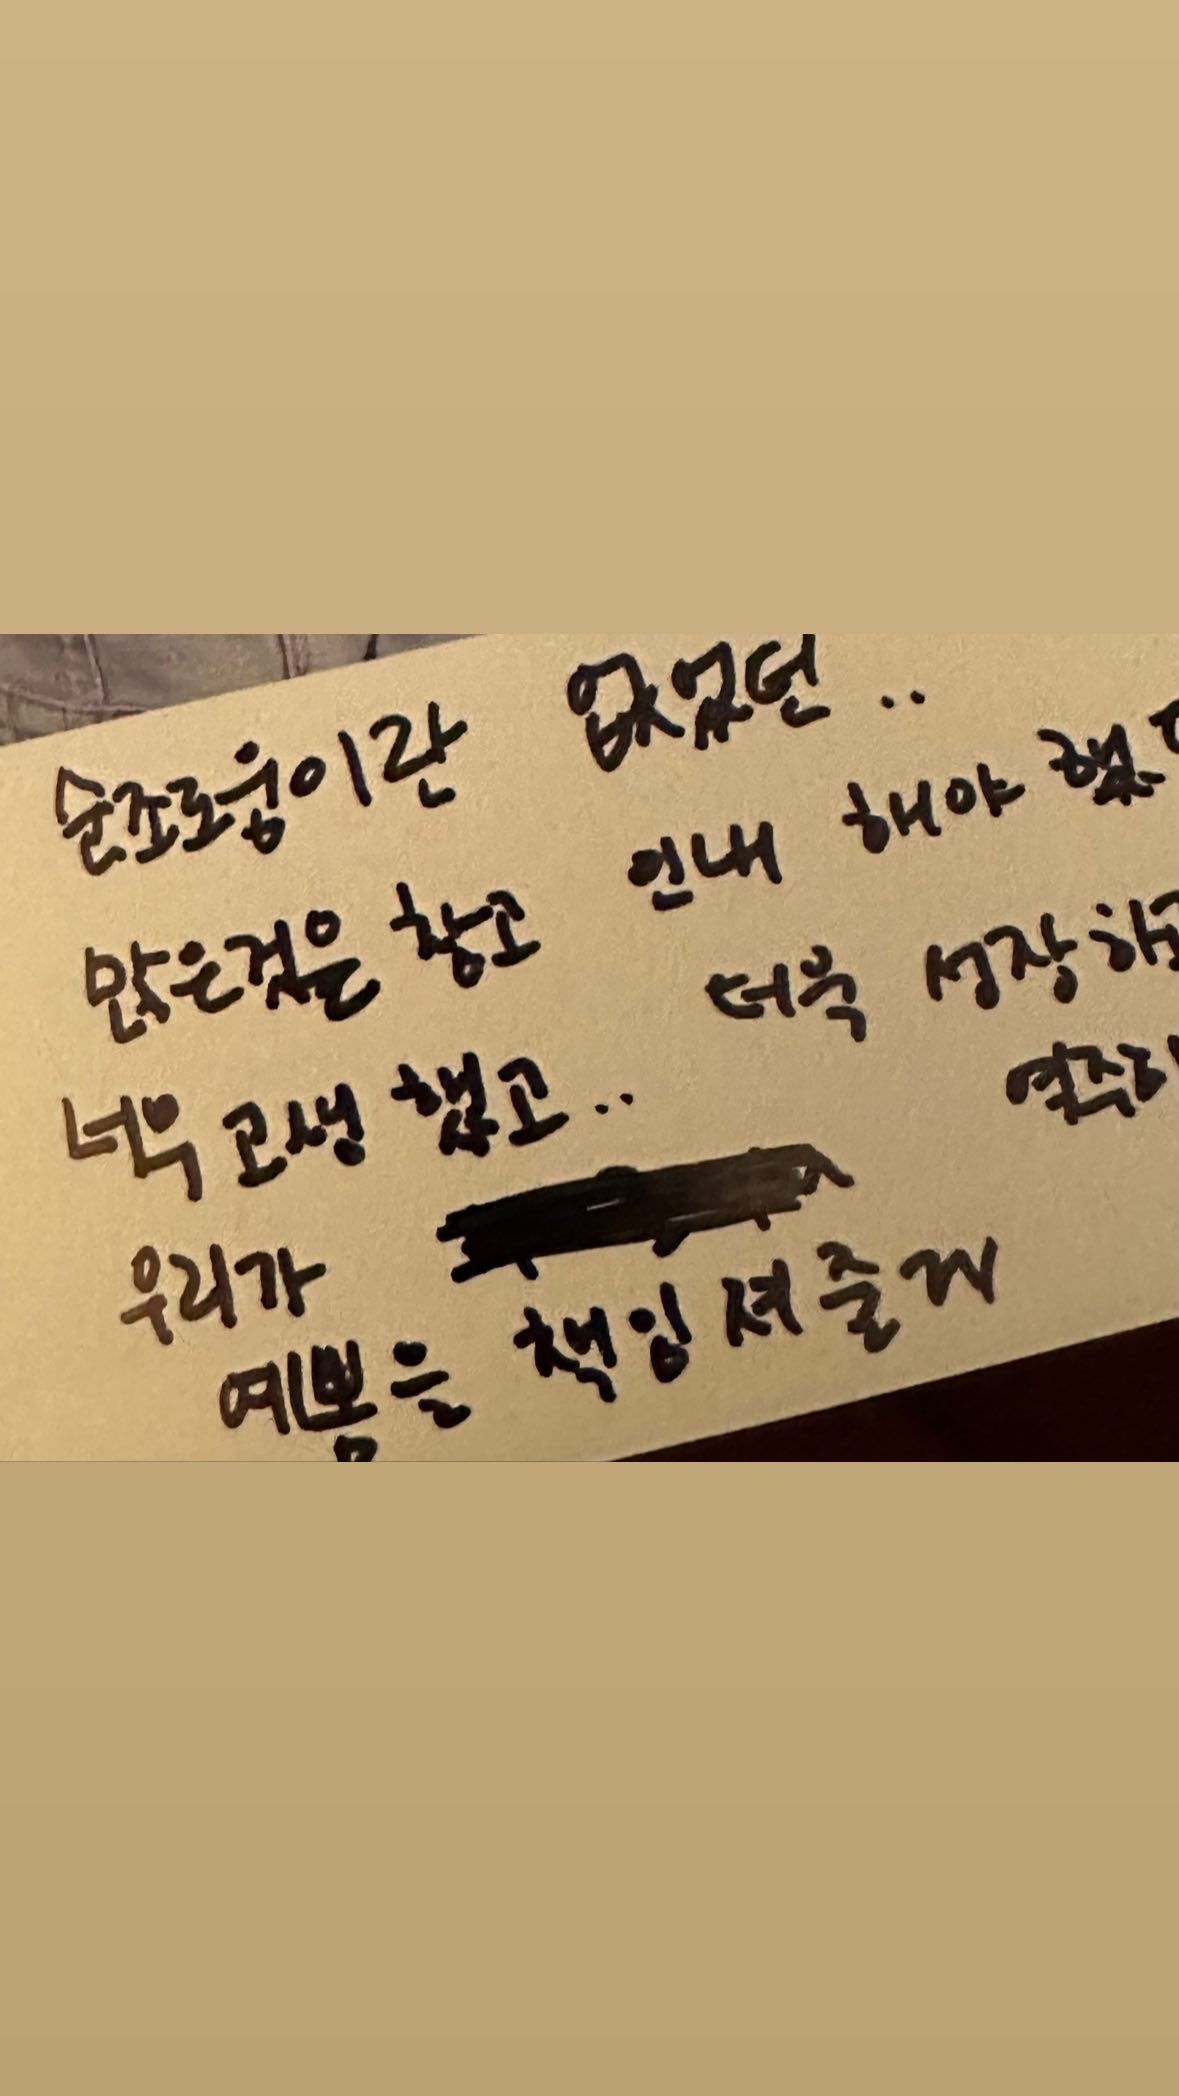 순조로움이란 없었던 ..
많은것을 참고 인내 해야 했
너무 고생 했고.. 더욱 성장하고
우리가
예쁨은 책임져줄게